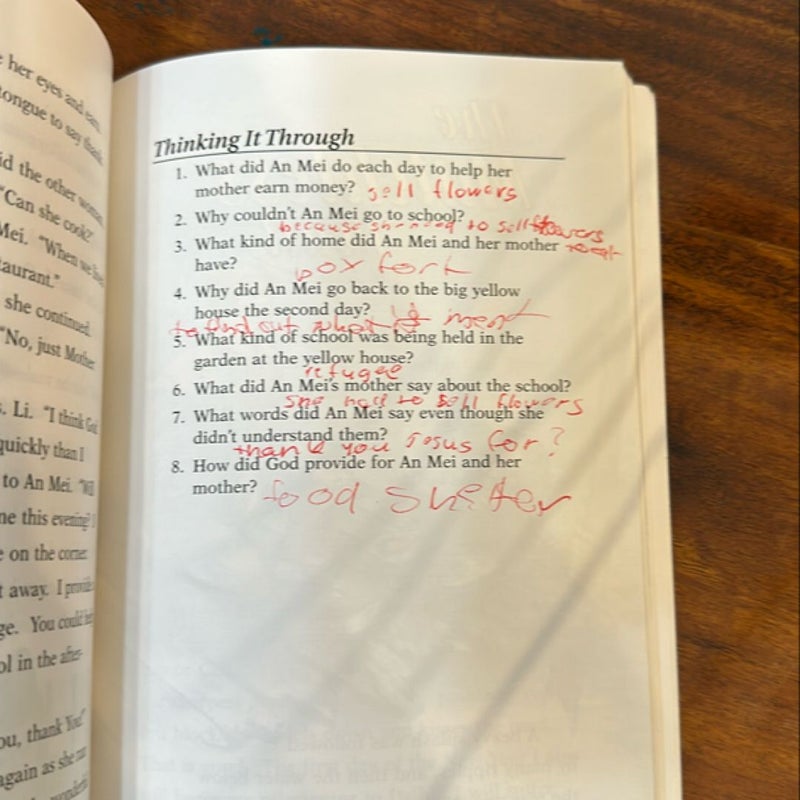 her eyes and
tongue to say thank
id the other woman.
"Can she cook?"
Mei. "When we
aurant."
she continued.
"No, just Mother
s. Li. "I think God
quickly than I
to An Mei. "Will
me this evening? I
e on the corner.
t away. I provide
ge. You could
ol in the after-
ou, thank You!"
again as she ran
Thinking It Through
1. What did An Mei do each day to help her
mother earn money? sell flowers
2. Why couldn't An Mei go to school?
because she to sell flowers
3. What kind of home did An Mei and her mother
have? box fort
4. Why did An Mei go back to the big yellow
house the second day?
to find out what it ment
5. What kind of school was being held in the
garden at the yellow house?
refugee
6. What did An Mei's mother say about the school?
she had to sell flowers
7. What words did An Mei say even though she
didn't understand them?
thank you Jesus for?
8. How did God provide for An Mei and her
mother? food shelter